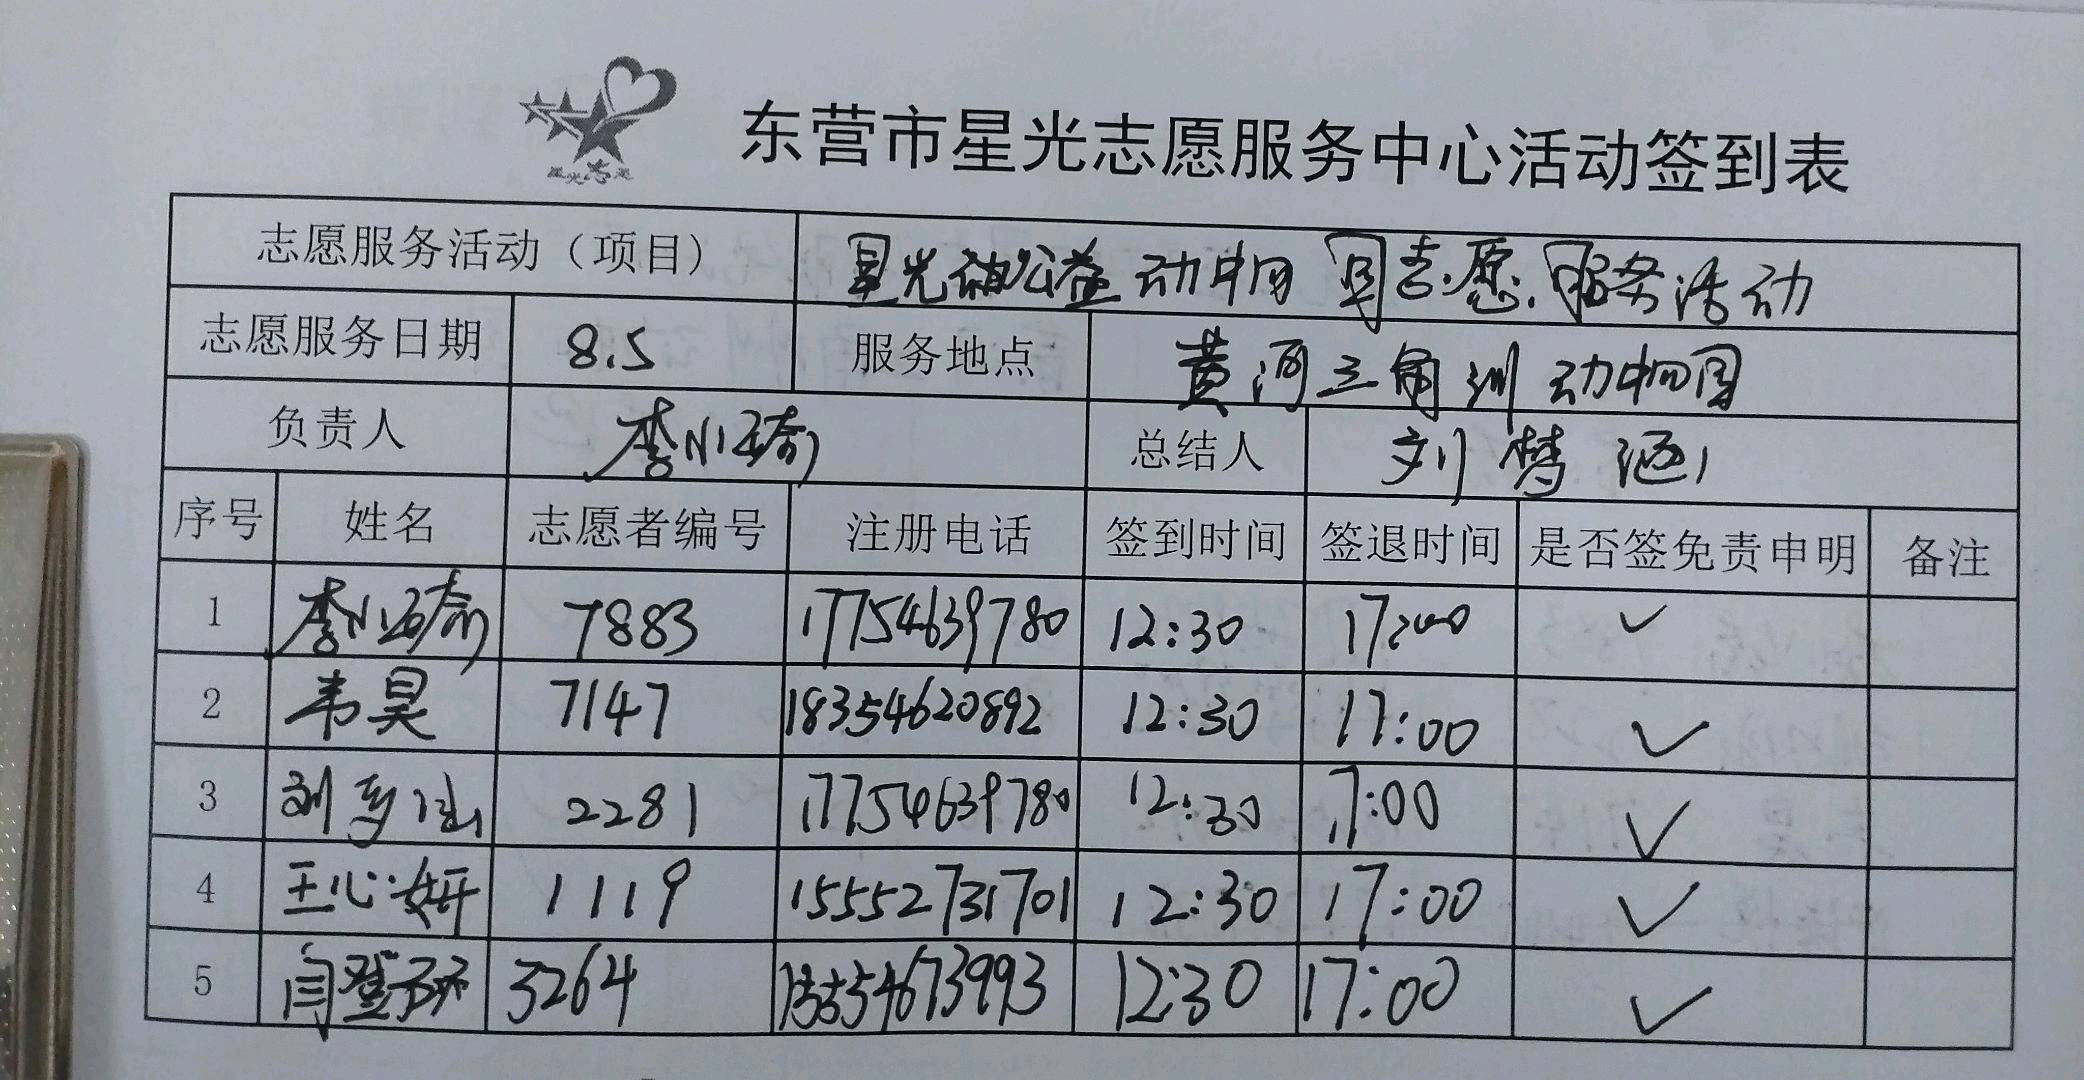 星光志愿
东营市星光志愿服务中心活动签到表
志愿服务活动（项目） 星光初公益动物园志愿服务活动
志愿服务日期 8.5 服务地点 黄河三角洲动物园
负责人 李小瑜 总结人 刘梦涵
序号 姓名 志愿者编号 注册电话 签到时间 签退时间 是否签免责申明 备注
1 李小瑜 7883 17754639780 12:30 17:00 ✓
2 韦昊 7147 18354620892 12:30 17:00 ✓
3 刘梦涵 2281 17754639780 12:30 17:00 ✓
4 王心妍 1119 15552731701 12:30 17:00 ✓
5 闫登环 3264 54673993 12:30 17:00 ✓